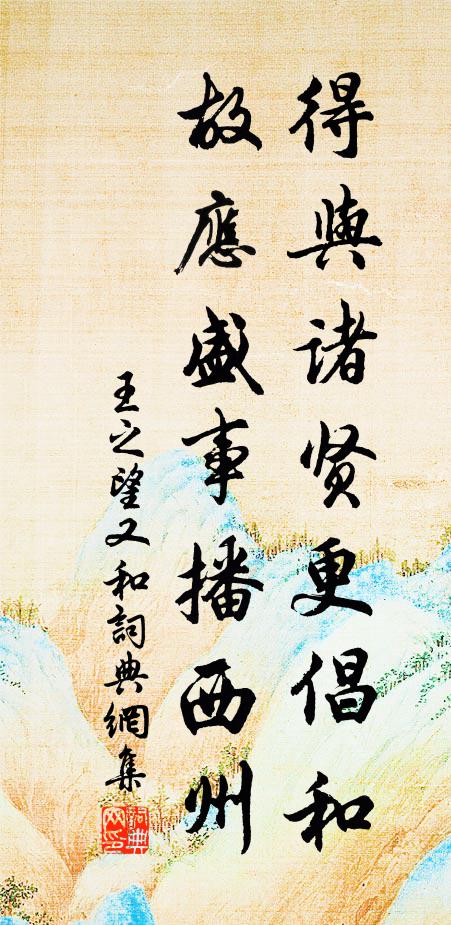 得與諸贤更倡和
故應盛事播西州
王之望又和詞典網集
詞典网印